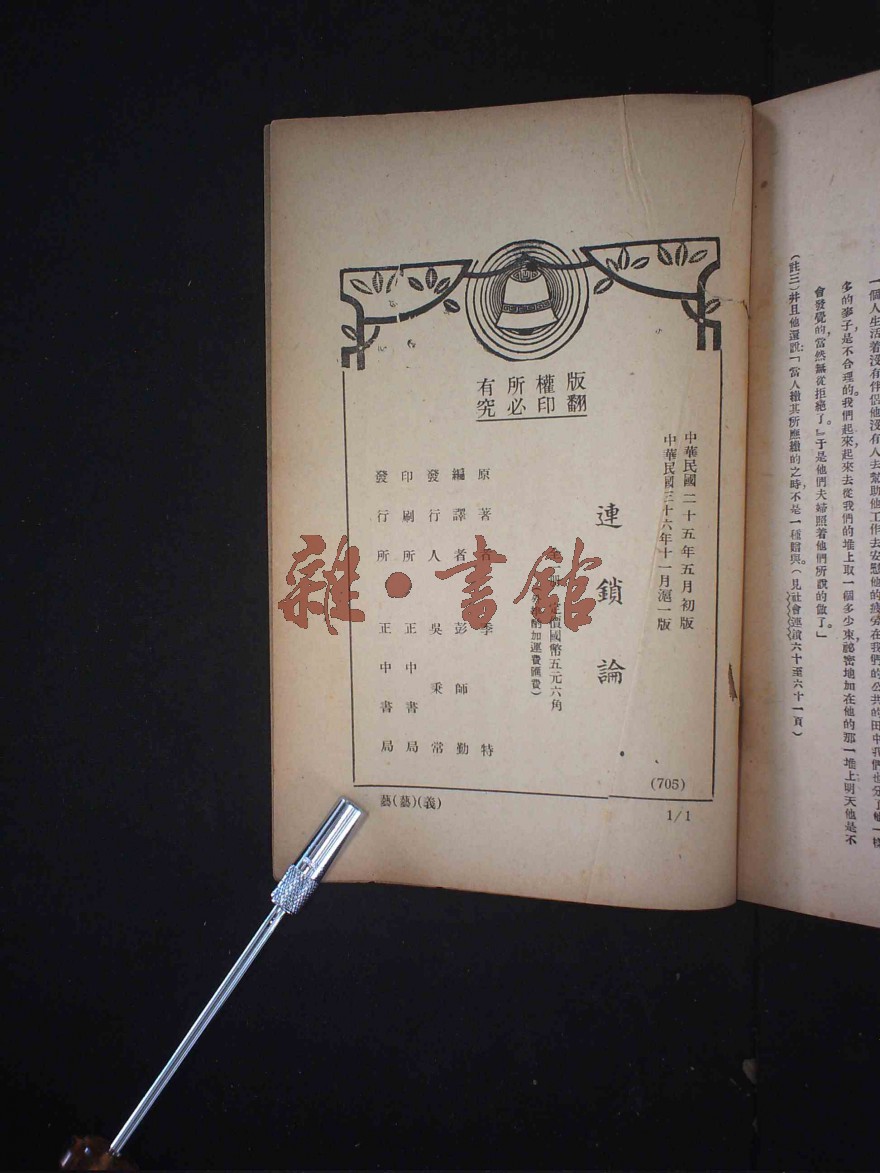 版權所有
翻印必究
中華民國二十五年五月初版
中華民國三十六年十一月滬一版
連鎖論
定價國幣五元六角
酌加運費匯費)
原著者 季特
編譯者 彭師勤
發行人 吳秉常
印刷所 正中書局
發行所 正中書局
(705)
藝(藝)(義)
1/1
雜·書館
一個人生活着沒有伴侶他沒有人去幫助他工作去安慰他的疲勞在我們的公共的田中我們也分了他一樣
多的麥子,是不合理的。我們起來,起來去從我們的堆上取一個多少束,祕密地加在他的那一堆上,明天他是不
會發覺的,當然無從拒絕了。』于是他們夫婦照着他們所說的做了。」
(註三)幷且他還說:「當人繳其所應繳的之時,不是一種贈與。(見社會連讀六十至六十一頁)